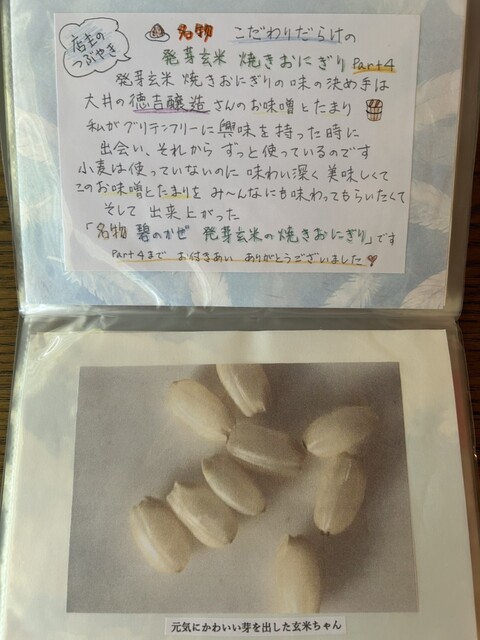 店主の
つぶやき
名物 こだわりだらけの
発芽玄米 焼きおにぎり Part4
発芽玄米 焼きおにぎりの味の決め手は
大井の徳吉醸造さんのお味噌とたまり
私がグリテンフリーに興味を持った時に
出会い、それから ずっと使っているのです
小麦は使っていないのに 味わい深く 美味しくて
このお味噌とたまりを み〜んなにも味わってもらいたくて
そして 出来上がった
「名物 碧のかぜ 発芽玄米の焼きおにぎり」です
Part4まで お付きあい ありがとうございました
元気にかわいい芽を出した玄米ちゃん